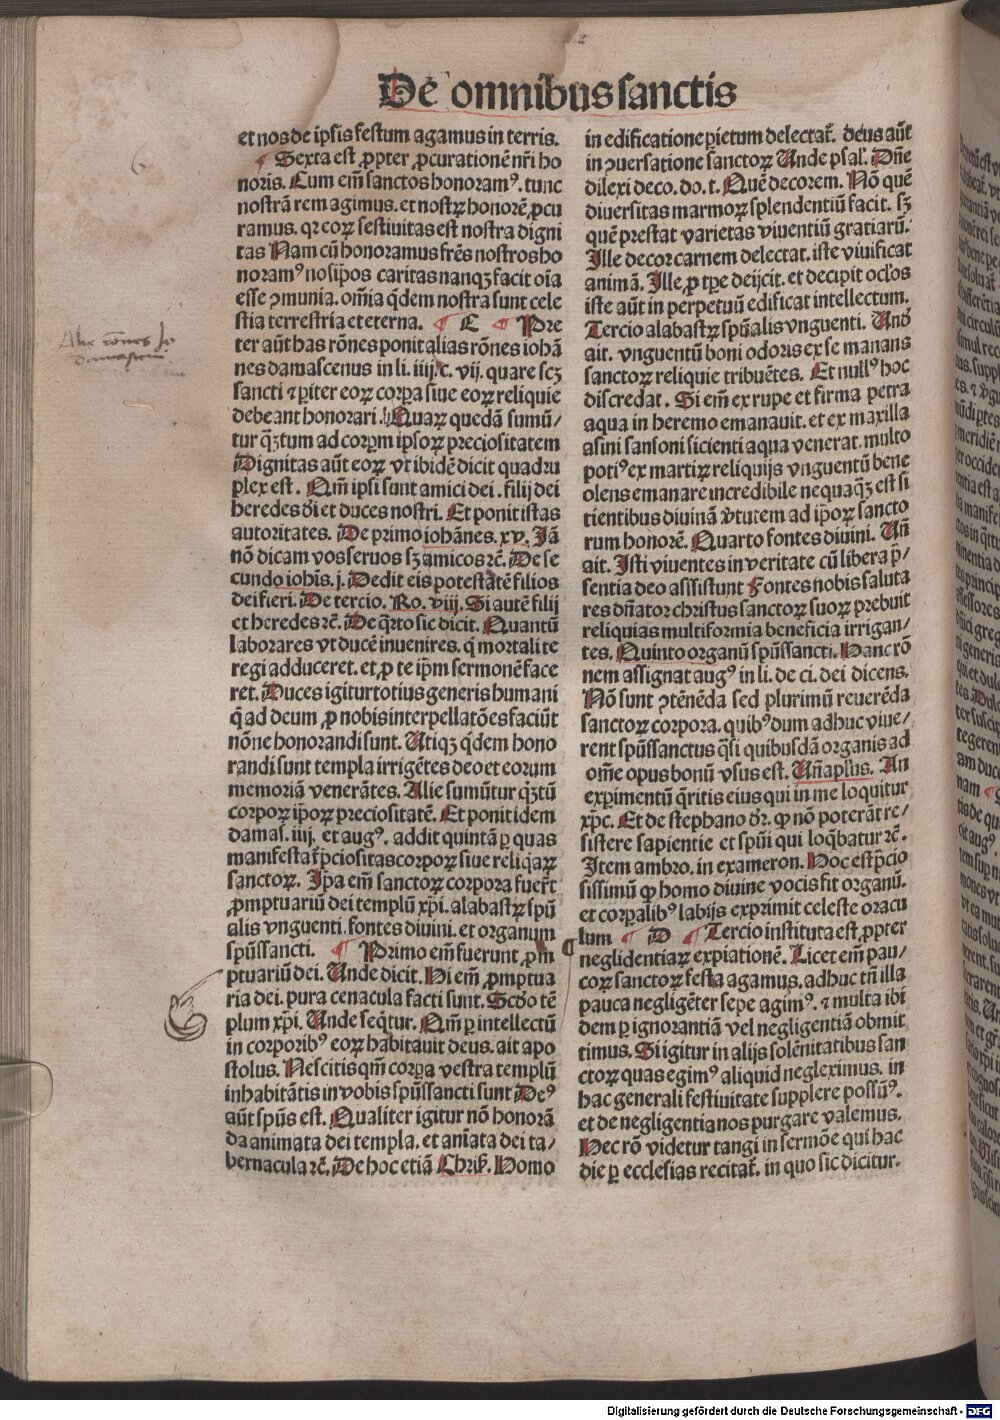 Dē omnibus sanctis
et nos de ipsis festum agamus in terris.
¶ Sexta est ꝓpter ꝓcurationē nr̄i ho
noris. Cum em̄ sanctos honoramꝰ. tunc
nostrā rem agimus. et nostrꝝ honorē ꝓcu
ramus. qꝛ eoꝝ festiuitas est nostra digni
tas Nam cū honoramus frēs nostros ho
noramꝰ nosip̄os caritas nanqꝫ facit oīa
esse ꝯmunia. om̄ia q̄dem nostra sunt cele
stia terrestria et eterna. ¶ C ¶ Pre
ter aūt has rōnes ponit alias rōnes iohā
nes damascenus in li. iiij. c. vij. quare scꝫ
sancti ⁊ ꝑiter eoꝝ corꝑa siue eoꝝ reliquie
debeant honorari. Quaꝝ quedā sumū/
tur q̄ꝫtum ad corpꝝm ipsoꝝ preciositatem
Dignitas aūt eoꝝ vt ibidē dicit quadru
plex est. Qm̄ ipsi sunt amici dei. filij dei
heredes dei et duces nostri. Et ponit istas
autoritates. De primo iohānes. xv. Iā
nō dicam vos seruos sꝫ amicos ꝛc̄. De se
cundo ioh̄is. j. Dedit eis potestatē filios
dei fieri. De tercio. Ro. viij. Si autē filij
et heredes ꝛc̄. De q̄rto sic dicit. Quantū
laborares vt ducē inuenires. q̄ mortali te
regi adduceret. et ꝓ te ip̄m sermonē face
ret. Duces igitur totius generis humani
q̄ ad deum ꝓ nobis interpellatōes faciūt
nōne honorandi sunt. Utiqꝫ q̄dem hono
randi sunt templa irrigētes deo et eorum
memoriā venerātes. Alie sumūtur qꝫtū
corpoꝝ ip̄oꝝ preciositatē. Et ponit idem
damas. iiij. et augꝰ. addit quintā ꝑ quas
manifestat̄ p̄ciositas corpoꝝ siue reliqiaꝝ
sanctoꝝ. Ip̄a em̄ sanctoꝝ corpora fuer̄t
ꝓmptuariū dei templū xp̄i. alabastꝝ spū
alis vnguenti. fontes diuini. et organum
spūssancti. ¶ Primo em̄ fuerunt ꝓm
ptuariū dei. Unde dicit. Hi em̄ ꝓmptua
ria dei. pura cenacula facti sunt. Scd̄o tē
plum xp̄i. Unde seq̄tur. Qm̄ ꝑ intellectū
in corporibꝰ eoꝝ habitauit deus. ait apo
stolus. Nescitis qm̄ corꝑa vestra templū
inhabitātis in vobis spūssancti sunt Deꝰ
aūt spūs est. Qualiter igitur nō honorā
da animata dei templa. et aīata dei ta/
bernacula ꝛc̄. De hoc etiā Chris̄. Homo
in edificatione ꝑietum delectat̄. deus aūt
in ꝯuersatione sanctoꝝ Unde psal̄. Dn̄e
dilexi deco. do. t. Quē decorem. Nō quē
diuersitas marmoꝝ splendentiū facit. sꝫ
quē prestat varietas viuentiū gratiarū.
Ille decor carnem delectat. iste viuificat
animā. Ille ꝓ tꝑe deijcit. et decipit oclōs
iste aūt in perpetuū edificat intellectum.
Tercio alabastꝝ spūalis vnguenti. Und̄
ait. vnguentū boni odoris ex se manans
sanctoꝝ reliquie tribuētes. Et nullꝰ hoc
discredat. Si em̄ ex rupe et firma petra
aqua in heremo emanauit. et ex maxilla
asini sansoni sicienti aqua venerat. multo
potiꝰ ex martiꝝ reliquijs vnguentū bene
olens emanare incredibile nequaq̄ꝫ est si
tientibus diuinā v̄tutem ad ip̄oꝝ sancto
rum honorē. Quarto fontes diuini. Un̄
ait. Isti viuentes in veritate cū libera p̄/
sentia deo assistunt Fontes nobis saluta
res dn̄ator christus sanctoꝝ suoꝝ prebuit
reliquias multiformia beneficia irrigan/
tes. Quinto organū spūssancti. Hanc rō
nem assignat augꝰ in li. de ci. dei dicens.
Nō sunt ꝯtēnēda sed plurimū reuerēda
sanctoꝝ corpora. quibꝰdum adhuc viue/
rent spūssanctus q̄si quibusdā organis ad
om̄e opus bonū vsus est. Un̄ apl̄us. An
exꝑimentū q̄ritis eius qui in me loquitur
xp̄c. Et de stephano dr̄. ꝙ nō poterāt re/
sistere sapientie et spūi qui loq̄batur ꝛc̄.
Item ambro. in exameron. Hoc est p̄cio
sissimū ꝙ homo diuine vocis fit organū.
et corꝑalibꝰ labijs exprimit celeste oracu
lum ¶ D ¶ Tercio instituta est ꝓpter
neglidentiaꝝ expiationē. Licet em̄ pau/
coꝝ sanctoꝝ festa agamus. adhuc tn̄ illa
pauca negligēter sepe agimꝰ. ⁊ multa ibi
dem ꝑ ignorantiā vel negligentiā obmit
timus. Si igitur in alijs solēnitatibus san
ctoꝝ quas egimꝰ aliquid negleximus. in
hac generali festiuitate supplere possūꝰ.
et de negligentia nos purgare valemus.
Hec rō videtur tangi in sermōe qui hac
die ꝑ ecclesias recitat̄. in quo sic dicitur.
6
Digitalisierung gefördert durch die Deutsche Forschungsgemeinschaft - DFG